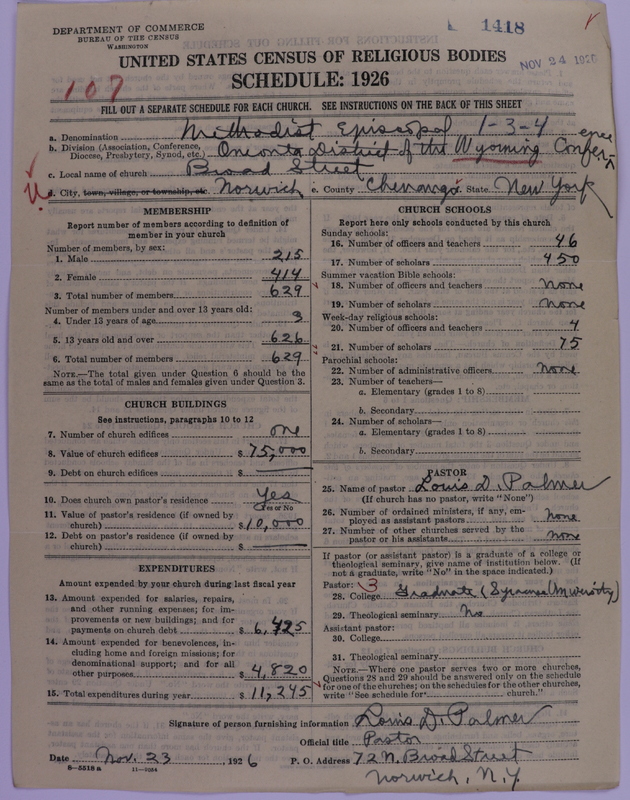 DEPARTMENT OF COMMERCE
BUREAU OF THE CENSUS
WASHINGTON
1418
NOV 24 1926
UNITED STATES CENSUS OF RELIGIOUS BODIES
SCHEDULE: 1926
107
FILL OUT A SEPARATE SCHEDULE FOR EACH CHURCH. SEE INSTRUCTIONS ON THE BACK OF THIS SHEET
a. Denomination Methodist Episcopal 1-3-4
b. Division (Association, Conference, Diocese, Presbytery, Synod, etc.) Oneonta District of the Wyoming Conference
c. Local name of church Broad Street
d. City, town, village, or township, etc. Norwich e. County Chenango State New York
MEMBERSHIP
Report number of members according to definition of
member in your church
Number of members, by sex:
1. Male 215
2. Female 414
3. Total number of members 629
Number of members under and over 13 years old:
4. Under 13 years of age 3
5. 13 years old and over 626
6. Total number of members 629
NOTE.—The total given under Question 6 should be the
same as the total of males and females given under Question 3.
CHURCH BUILDINGS
See instructions, paragraphs 10 to 12
7. Number of church edifices one
8. Value of church edifices $ 75,000
9. Debt on church edifices $
10. Does church own pastor's residence Yes
Yes or No
11. Value of pastor's residence (if owned by
church) $ 10,000
12. Debt on pastor's residence (if owned by
church) $
EXPENDITURES
Amount expended by your church during last fiscal year
13. Amount expended for salaries, repairs,
and other running expenses; for im-
provements or new buildings; and for
payments on church debt $ 6,425
14. Amount expended for benevolences, in-
cluding home and foreign missions; for
denominational support; and for all
other purposes $ 4,820
15. Total expenditures during year $ 11,245
CHURCH SCHOOLS
Report here only schools conducted by this church
Sunday schools:
16. Number of officers and teachers 46
17. Number of scholars 450
Summer vacation Bible schools:
18. Number of officers and teachers none
19. Number of scholars none
Week-day religious schools:
20. Number of officers and teachers 4
21. Number of scholars 75
Parochial schools:
22. Number of administrative officers none
23. Number of teachers—
a. Elementary (grades 1 to 8)
b. Secondary
24. Number of scholars—
a. Elementary (grades 1 to 8)
b. Secondary
PASTOR
25. Name of pastor Louis D. Palmer
(If church has no pastor, write "None")
26. Number of ordained ministers, if any, em-
ployed as assistant pastors none
27. Number of other churches served by the
pastor or his assistants none
If pastor (or assistant pastor) is a graduate of a college or
theological seminary, give name of institution below. (If
not a graduate, write "No" in the space indicated.)
Pastor: 3
28. College Graduate (Syracuse University)
29. Theological seminary No
Assistant pastor:
30. College
31. Theological seminary
NOTE.—Where one pastor serves two or more churches,
Questions 28 and 29 should be answered only on the schedule
for one of the churches; on the schedules for the other churches,
write "See schedule for church."
Signature of person furnishing information Louis D. Palmer
Official title Pastor
Date Nov. 23, 1926 P. O. Address 72 N. Broad Street
8—5518 a 11—9284 Norwich, N.Y.